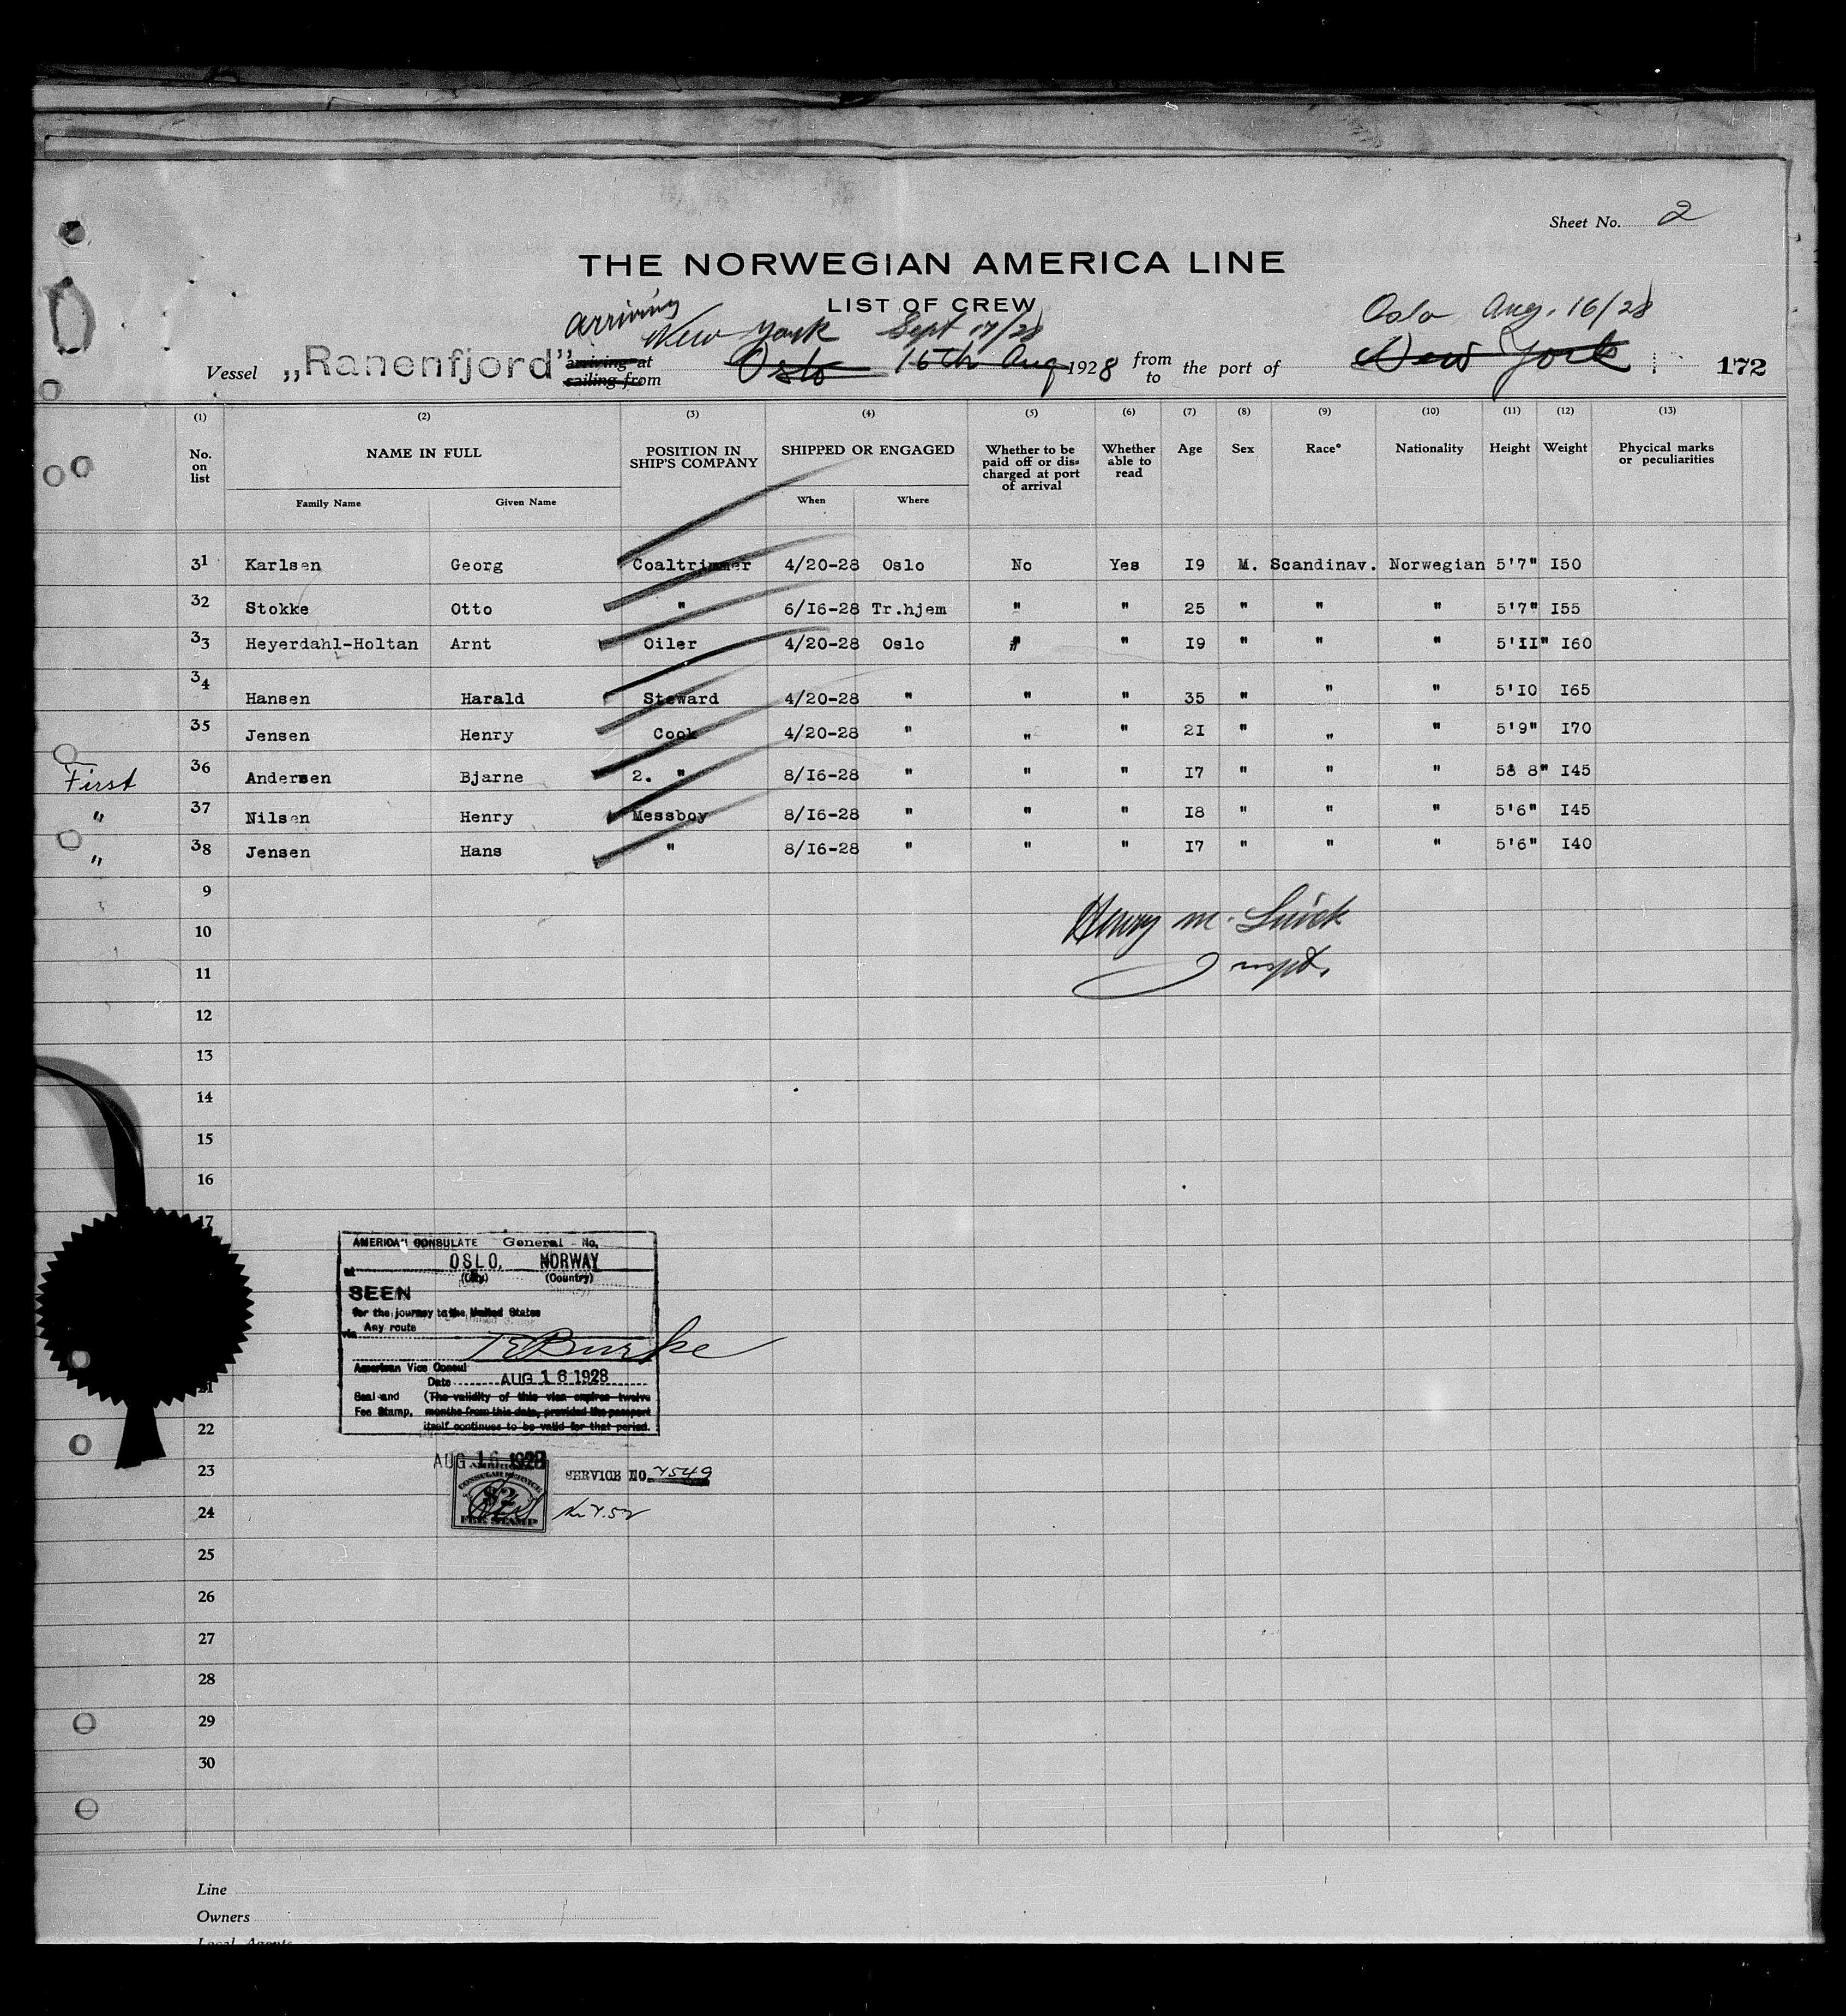 Sheet No. 2
THE NORWEGIAN AMERICA LINE
LIST OF CREW
arriving New York Sept 17/28 Oslo Aug. 16/28
Vessel „Ranenfjord” arriving at sailing from Oslo 16th Aug 1928 from to the port of New York 172
(1) (2) (3) (4) (5) (6) (7) (8) (9) (10) (11) (12) (13)
No. on list NAME IN FULL POSITION IN SHIP'S COMPANY SHIPPED OR ENGAGED Whether to be paid off or dis-charged at port of arrival Whether able to read Age Sex Race* Nationality Height Weight Phycical marks or peculiarities
Family Name Given Name When Where
31 Karlsen Georg Coaltrimmer 4/20-28 Oslo No Yes I9 M. Scandinav. Norwegian 5'7" I50
32 Stokke Otto " 6/I6-28 Tr.hjem " " 25 " " " 5'7" I55
33 Heyerdahl-Holtan Arnt Oiler 4/20-28 Oslo " " I9 " " " 5'II" I60
34 Hansen Harald Steward 4/20-28 " " " 35 " " " 5'I0 I65
35 Jensen Henry Cook 4/20-28 " " " 2I " " " 5'9" I70
First 36 Andersen Bjarne 2. " 8/I6-28 " " " I7 " " " 58 8" I45
" 37 Nilsen Henry Messboy 8/I6-28 " " " I8 " " " 5'6" I45
" 38 Jensen Hans " 8/I6-28 " " " I7 " " " 5'6" I40
9
10
Henry M.
11
Inspt.
12
13
14
15
16
17
AMERICAN CONSULATE General No.
at OSLO, NORWAY
(City) (Country)
SEEN
for the journey to the United States
via Any route
Burke
American Vice Consul
Date AUG 16 1928
Seal and (The validity of this visa expires twelve
Fee Stamp, months from this date, provided the passport
itself continues to be valid for that period.
21
22
AUG 16 1928
23
CONSULAR SERVICE
SERVICE NO. 4549
$2
FEE STAMP
24
25
26
27
28
29
30
Line
Owners
Local Agents